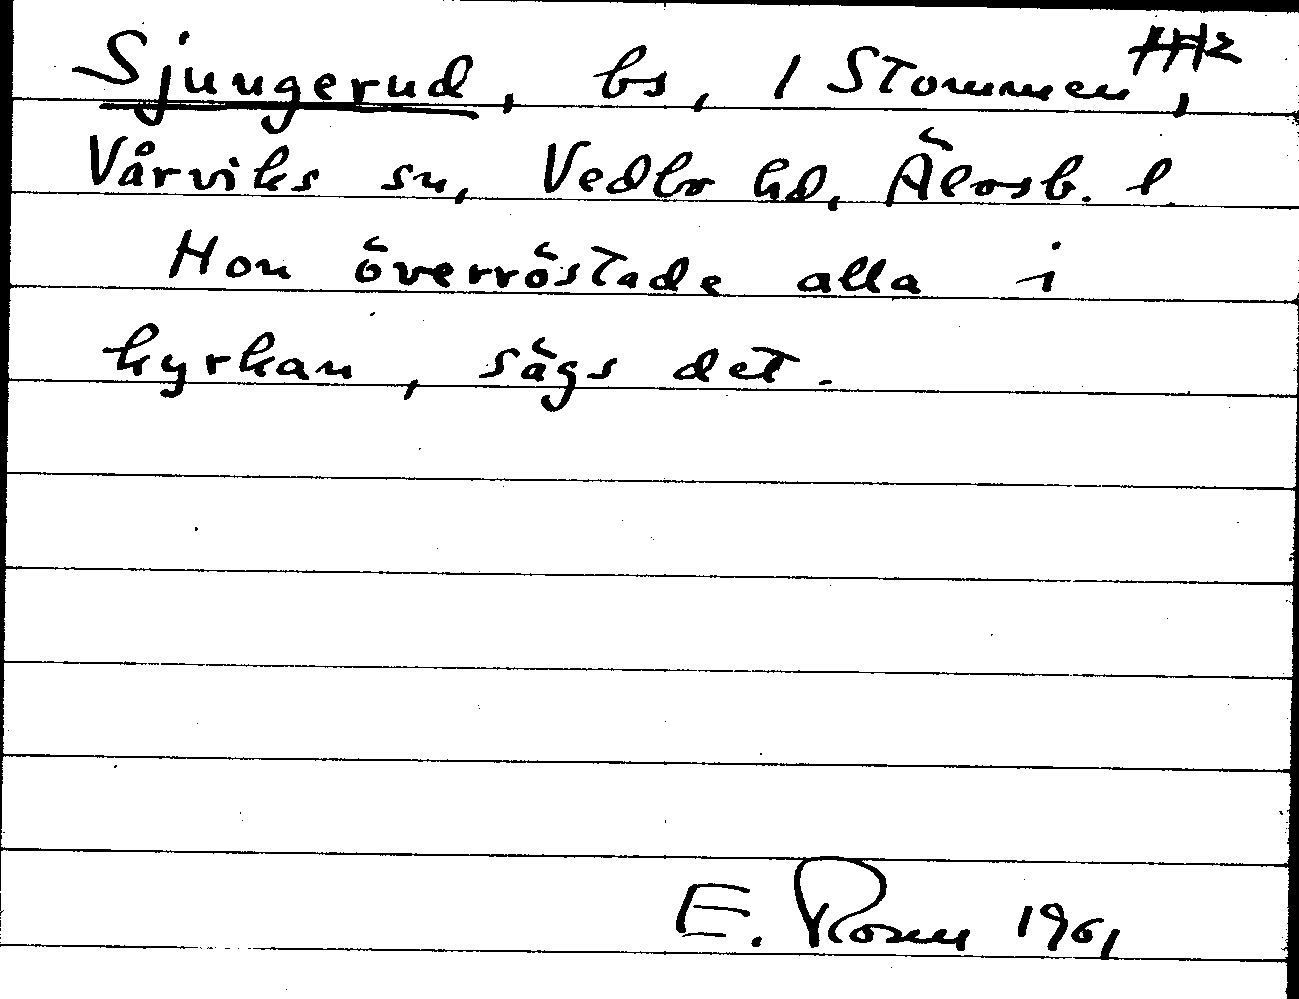 Sjungerud, bs, / Stommen,
Vårviks sn, Vedbo hd, Älvsb. l.
Hon överröstade alla i
kyrkan, sägs det.
E. Rosen 1961